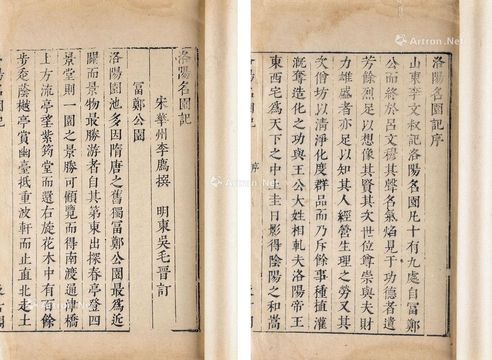 洛陽名園記序
山東李文叔記洛陽名園凡十有九處自富鄭
公而終於呂文穆其聲名氣焰見于功德者遺
芳餘烈足以想像其賢其次世位尊崇與夫財
力雄盛者亦足以知其人經營生理之勞又其
次僧坊以清淨化度群品而乃斥餘事種植灌
溉奪造化之功與王公大姓相軋夫洛陽帝王
東西宅為天下之中土圭日影得陰陽之和嵩
洛陽名園記
宋華州李廌撰 明東吳毛晉訂
富鄭公園
洛陽園池多因隋唐之舊獨富鄭公園最為近
闢而景物最勝游者自其第東出探春亭登四
景堂則一園之景勝可顧覽而得南渡通津橋
上方流亭望紫筠堂而還右旋花木中有百餘
步走蔭樾亭賞幽臺抵重波軒而止直北走土
Artron.Net
Artron.Net